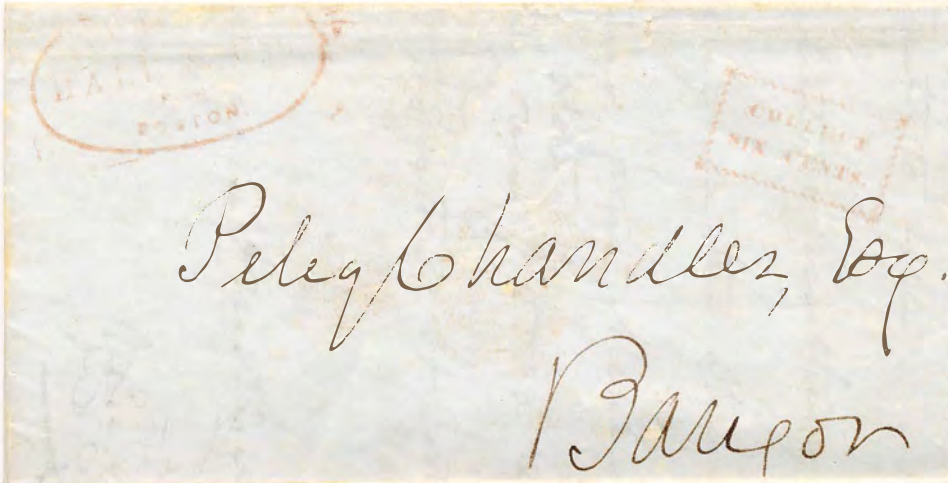 BOSTON.
COLLECT
SIX CENTS
Peleg Chandler, Esq.
Bangor